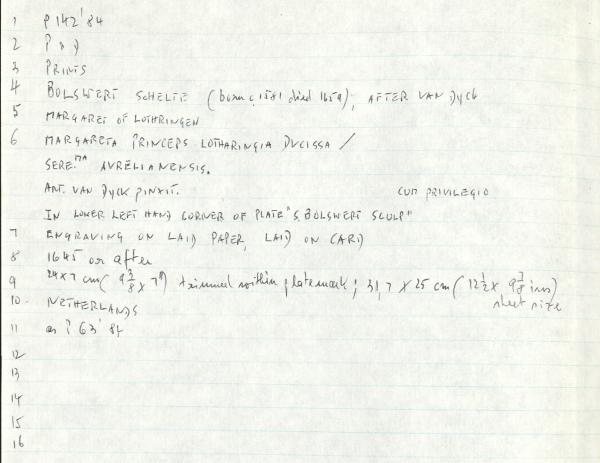 1 P142'84
2 P » )
3 PRINTS
4 BOLSWERT SCHELTE (born c.1581 died 1659); AFTER VAN DYCK
5 MARGARET OF LOTHRINGEN
6 MARGARETA PRINCEPS LOTHARINGIA DVCISSA /
SERE.MA AVRELIANENSIS.
ANT. VAN DYCK PINXIT. CUM PRIVILEGIO
IN LOWER LEFT HAND CORNER OF PLATE "S. BOLSWERT SCULP"
7 ENGRAVING ON LAID PAPER, LAID ON CARD
8 1645 or after
9 24 x 7 cm ( 9 3/8 x 7") trimmed within platemark; 31,7 x 25 cm (12 1/2 x 9 7/8 ins)
sheet size
10 NETHERLANDS
11 as P63'84
12
13
14
15
16